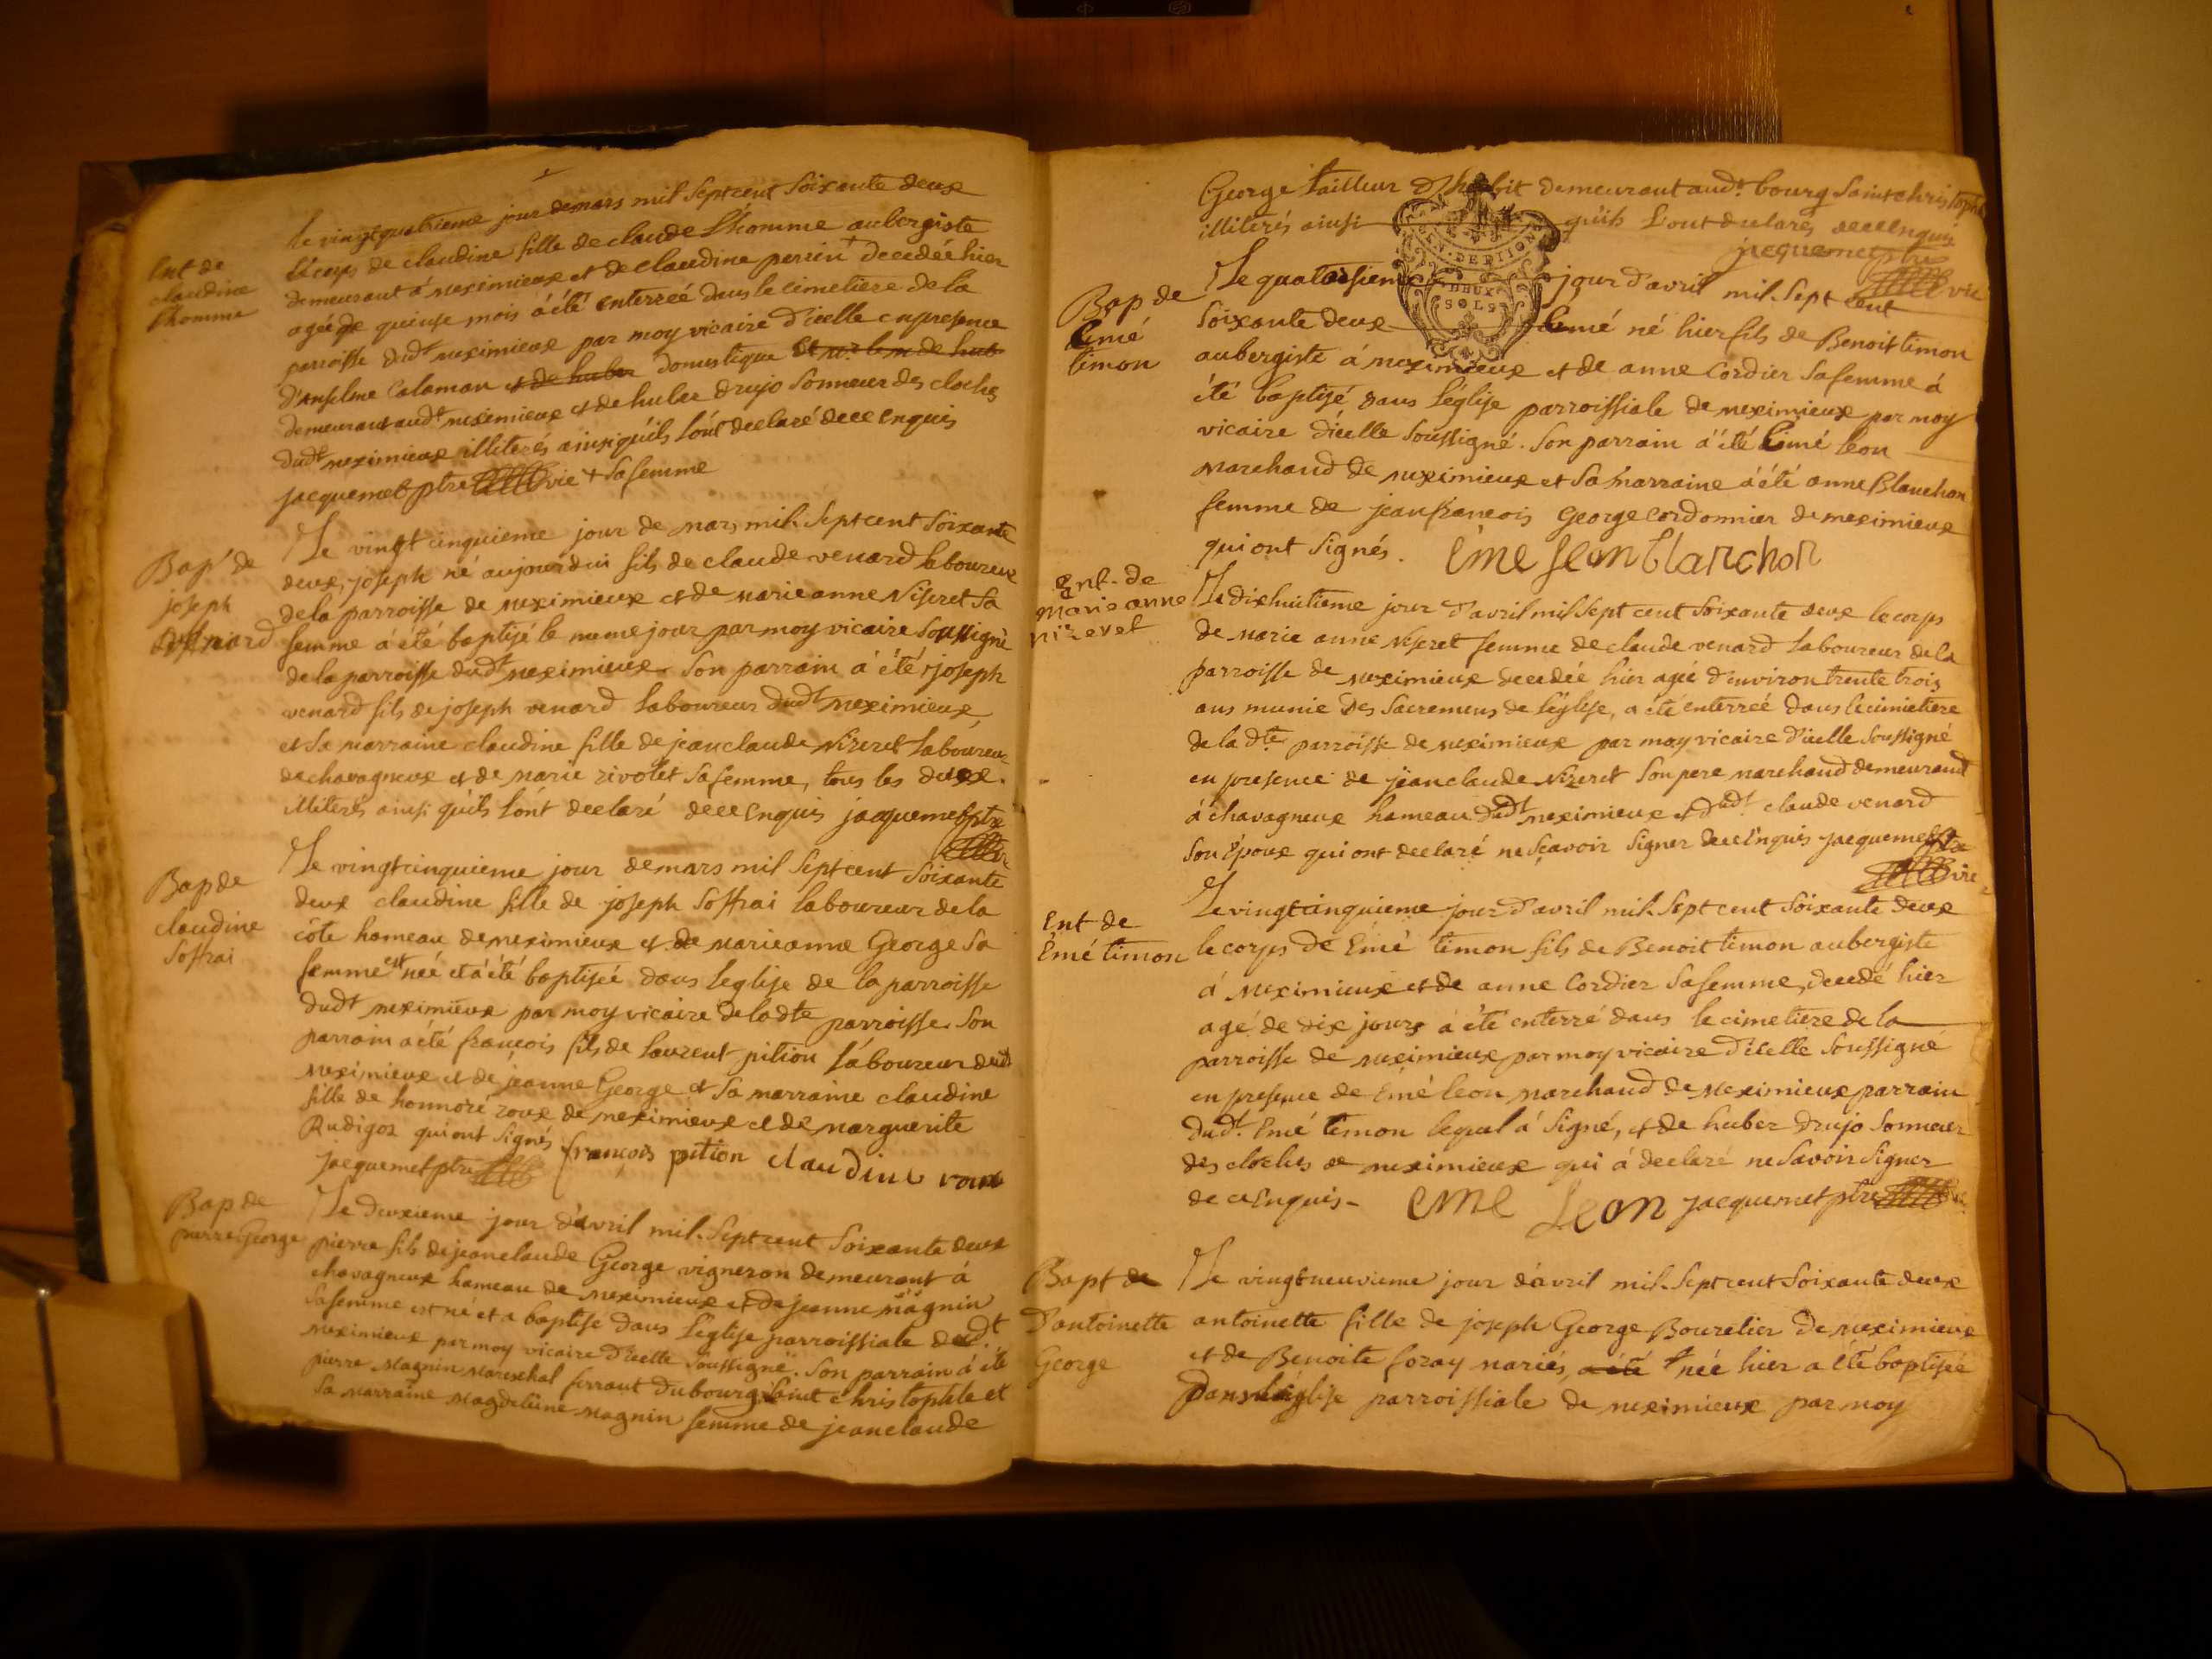 Ent de
claudine
l'homme
Le vingtquatrieme jour demars mil Septcent Soixante deux
le corps de claudine fille de claude L'homme aubergiste
demeurant á meximieux et de claudine perrin + decedée hier
agée de quinse mois á été enterreé dans le cimetiere de la
parroisse dudt meximieux par moy vicaire d'icelle en presence
d'anselme Calaman et de huber domestique
demeurant audt meximieux et de huber drujo Sonneur des cloches
dudt meximieux illiterés ainsiquils l'ont declaré dece enquis
jacquemet ptre vic + Sa femme
Bap' de
joseph
venard
Le vingt cinquieme jour de mars mil. Septcent Soixante
deux, joseph né aujourdui fils de claude venard laboureur
de la parroisse de meximieux et de marieanne Niseret Sa
femme á été baptisé le meme jour par moy vicaire Soussigné
de la parroisse dudt meximieux. Son parrain á été joseph
venard fils de joseph venard laboureur dudt meximieux,
et Sa marraine claudine fille de jeanclaude Nizeret laboureur
de chavagneux et de marie rivolet Sa femme, tous les deux.
illiterés ainsi qu'ils l'ont declaré dece enquis jacquemet ptre
vic
Bap de
claudine
Soffrai
Le vingtcinquieme jour demars mil Septcent Soixante
deux claudine fille de joseph Soffrai laboureur dela
côte hameau demeximieux et de marieanne George Sa
femme est neé et á été baptiseé dans leglise de la parroisse
dudt meximieux par moy vicaire deladte parroisse. Son
parrain a été francois fils de laurent pition laboureur dudt
meximieux et de jeanne George et Sa marraine claudine
fille de honnoré roux de meximieux et de marguerite
Rudigoz qui ont Signés françois pition claudine roux
jacquemet ptre
Bap de
pierre George
Le deuxieme jour d'avril mil. Septcent Soixante deux
pierre fils de jeanclaude George vigneron demeurant á
chavagneux hameau de meximieux et de jeanne magnin
Sa femme est né et a baptise dans L'eglise parroissiale dudt
meximieux par moy vicaire d'icelle Soussigné. Son parrain á été
pierre Magnin mareschal ferrant du bourg Saint christophle et
Sa marraine Magdeleine magnin femme de jeanclaude
George tailleur d'habit demeurant audt bourg Saint christophle
illiterés ainsi qu'ils L'ont declarés dece enquis
jacquemet ptre
vic
Bap de
Emé
timon
Le quatorsieme jour d'avril mil. Sept cent
Soixante deux Emé né hier fils de Benoit timon
aubergiste á meximieux et de anne Cordier Sa femme á
été baptisé dans L'église parroissiale de meximieux par moy
vicaire d'icelle Soussigné. Son parrain á été Emé leon
marchand de meximieux et Sa marraine á été anne Blanchon
femme de jeanfrancois George Cordonnier de meximieux
qui ont Signés. Eme leon blanchon
Ent. de
marie anne
nizeret
Le dixhuitieme jour d'avril mil Sept cent Soixante deux le corps
de marie anne Niseret femme de claude venard laboureur de la
parroisse de meximieux decedée hier ageé d'environ trente trois
ans munie des Sacremens de l'église, a été enterreé dans lecimetiere
de la dte parroisse de meximieux par moy vicaire d'icelle Soussigné
en presence de jeanclaude Nizeret Son pere marchand demeurand
á chavagneux hameau dudt meximieux et dudt claude venard
Son Epoux qui ont declaré ne Sçavoir Signer dece Enquis jacquemet ptre
vic
Ent de
Émé timon
Le vingtcinquieme jour d'avril mil. Sept cent Soixante deux
le corps de Emé timon fils de Benoit timon aubergiste
á Meximieux et de anne Cordier Sa femme, decedé hier
agé de dix jours á été enterré dans le cimetiere de la
parroisse de meximieux par moy vicaire d'icelle Soussigné
en presence de Emé leon marchand de Meximieux parrain
dudt. Emé timon lequel á Signé, et de huber drujo Sonneur
des cloches de meximieux qui á declaré ne Savoir Signer
de ce Enquis - eme Leon jacquemet ptre
Bapt de
d'antoinette
George
Le vingtneuvieme jour d'avril mil. Septcent Soixante deux
antoinette fille de joseph George Bourelier de meximieux
et de Benoite foray mariés, a été née hier a été baptiseé
dans L'église parroissiale de meximieux par moy
GEN. DE DIION
DEUX
SOLS